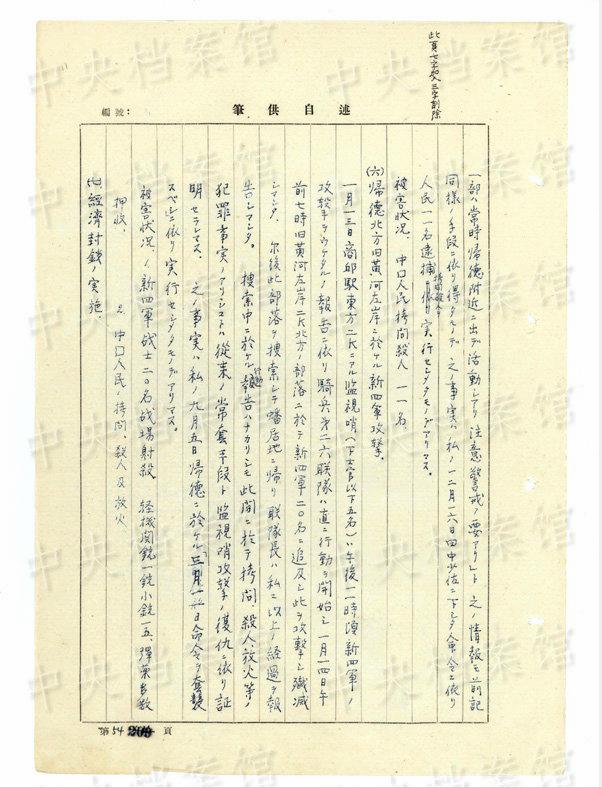 此頁七字加入三字削除
編號：
筆供自述
一部ハ常時帰德附近ニ出デ活動シアリ注意警戒ノ要アリト 之ノ情報モ前記
同様ノ手段ニ依リ得タルモノデ 之ノ事実ハ私ノ一二月一六日田中少佐ニ下シタ命令ニ依リ
人民一一名逮捕拷問殺人 実行セシメタモノデアリマス。
被害状況、中口人民拷問殺人 一一名
(六)帰德北方旧黄河左岸ニ於ケル新四軍攻撃。
一月一三日商邱駅東方二Kニアル監視哨(下士官以下五名)ハ午後一一時頃新四軍ノ
攻撃ヲウケタルノ報告ニ依リ騎兵第二六联隊ハ直ニ行動ヲ開始シ一月一四日午
前七時旧黄河左岸二K北方ノ部落ニ於テ新四軍二〇名ニ追及シ此ヲ攻撃シ殲滅
シマシタ、尔後此部落ヲ捜索シテ蟠居地ニ帰リ联隊長ハ私ニ以上ノ経過ヲ報
告シマシタ。捜索中ニ於ケル行動報告ハナカリシモ此間ニ於テ拷問、殺人、放火等ノ
犯罪事実ノアリシコトハ從来ノ常套手段ト監視哨攻撃ノ復仇ニ依リ証
明セラレマス、之ノ事実ハ私ノ九月五日帰德ニ於ケル 命令ヲ套襲
スベシニ依リ実行セシメタモノデアリマス。
被害状況 1、新四軍战士二〇名战場射殺 軽機関銃一銃小銃一五、弾薬多数
押収、
2、中口人民ノ拷問、殺人及放火
(七)経済封鎖ノ実施、
第54 頁
中央档案馆